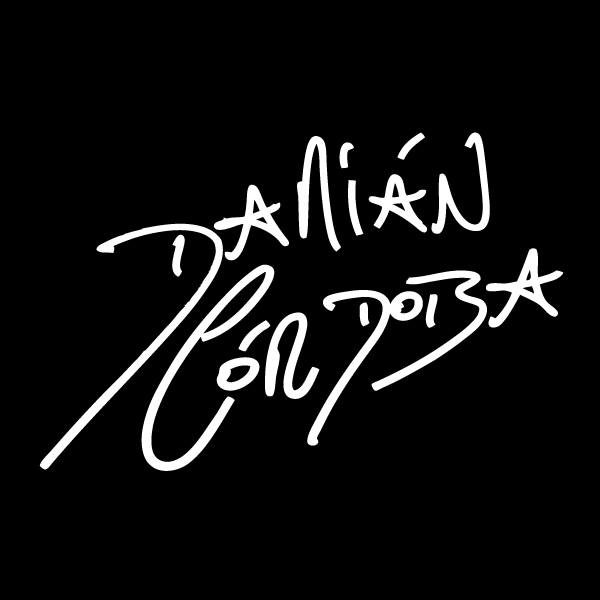 DAMIÁN
CÓRDOBA